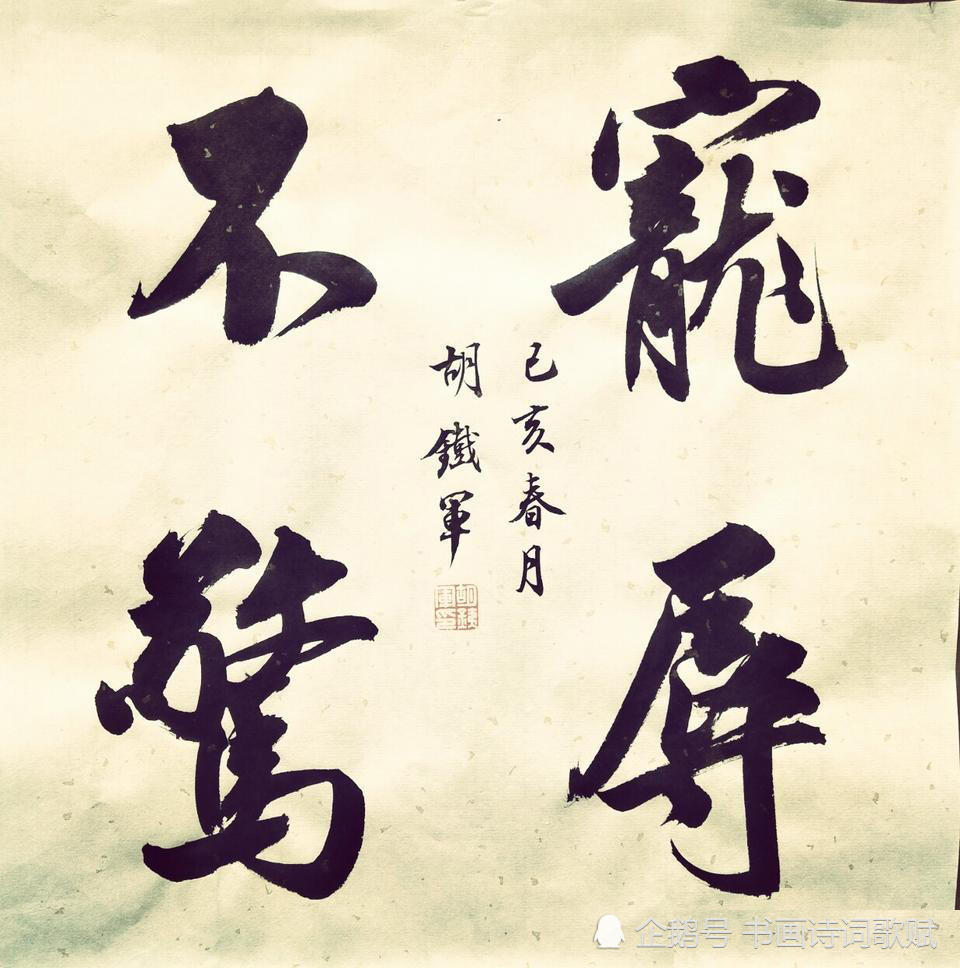 寵辱
不驚
己亥春月
胡鐵軍
企鹅号 书画诗词歌赋